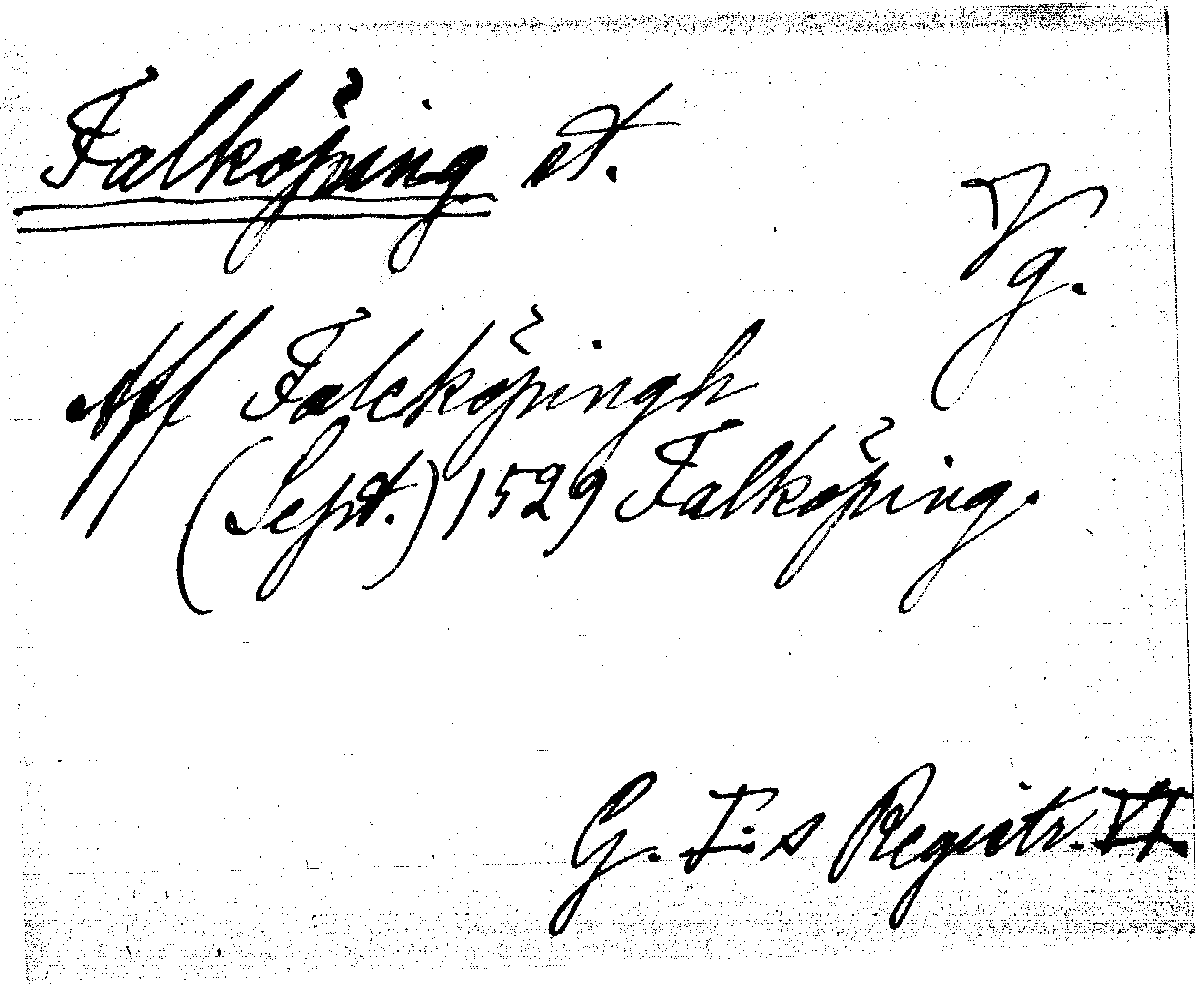 Falköping st.
Vg.
Aff Falcköpingh
(Sept.) 1529 Falköping.
G. I:s Registr. VI